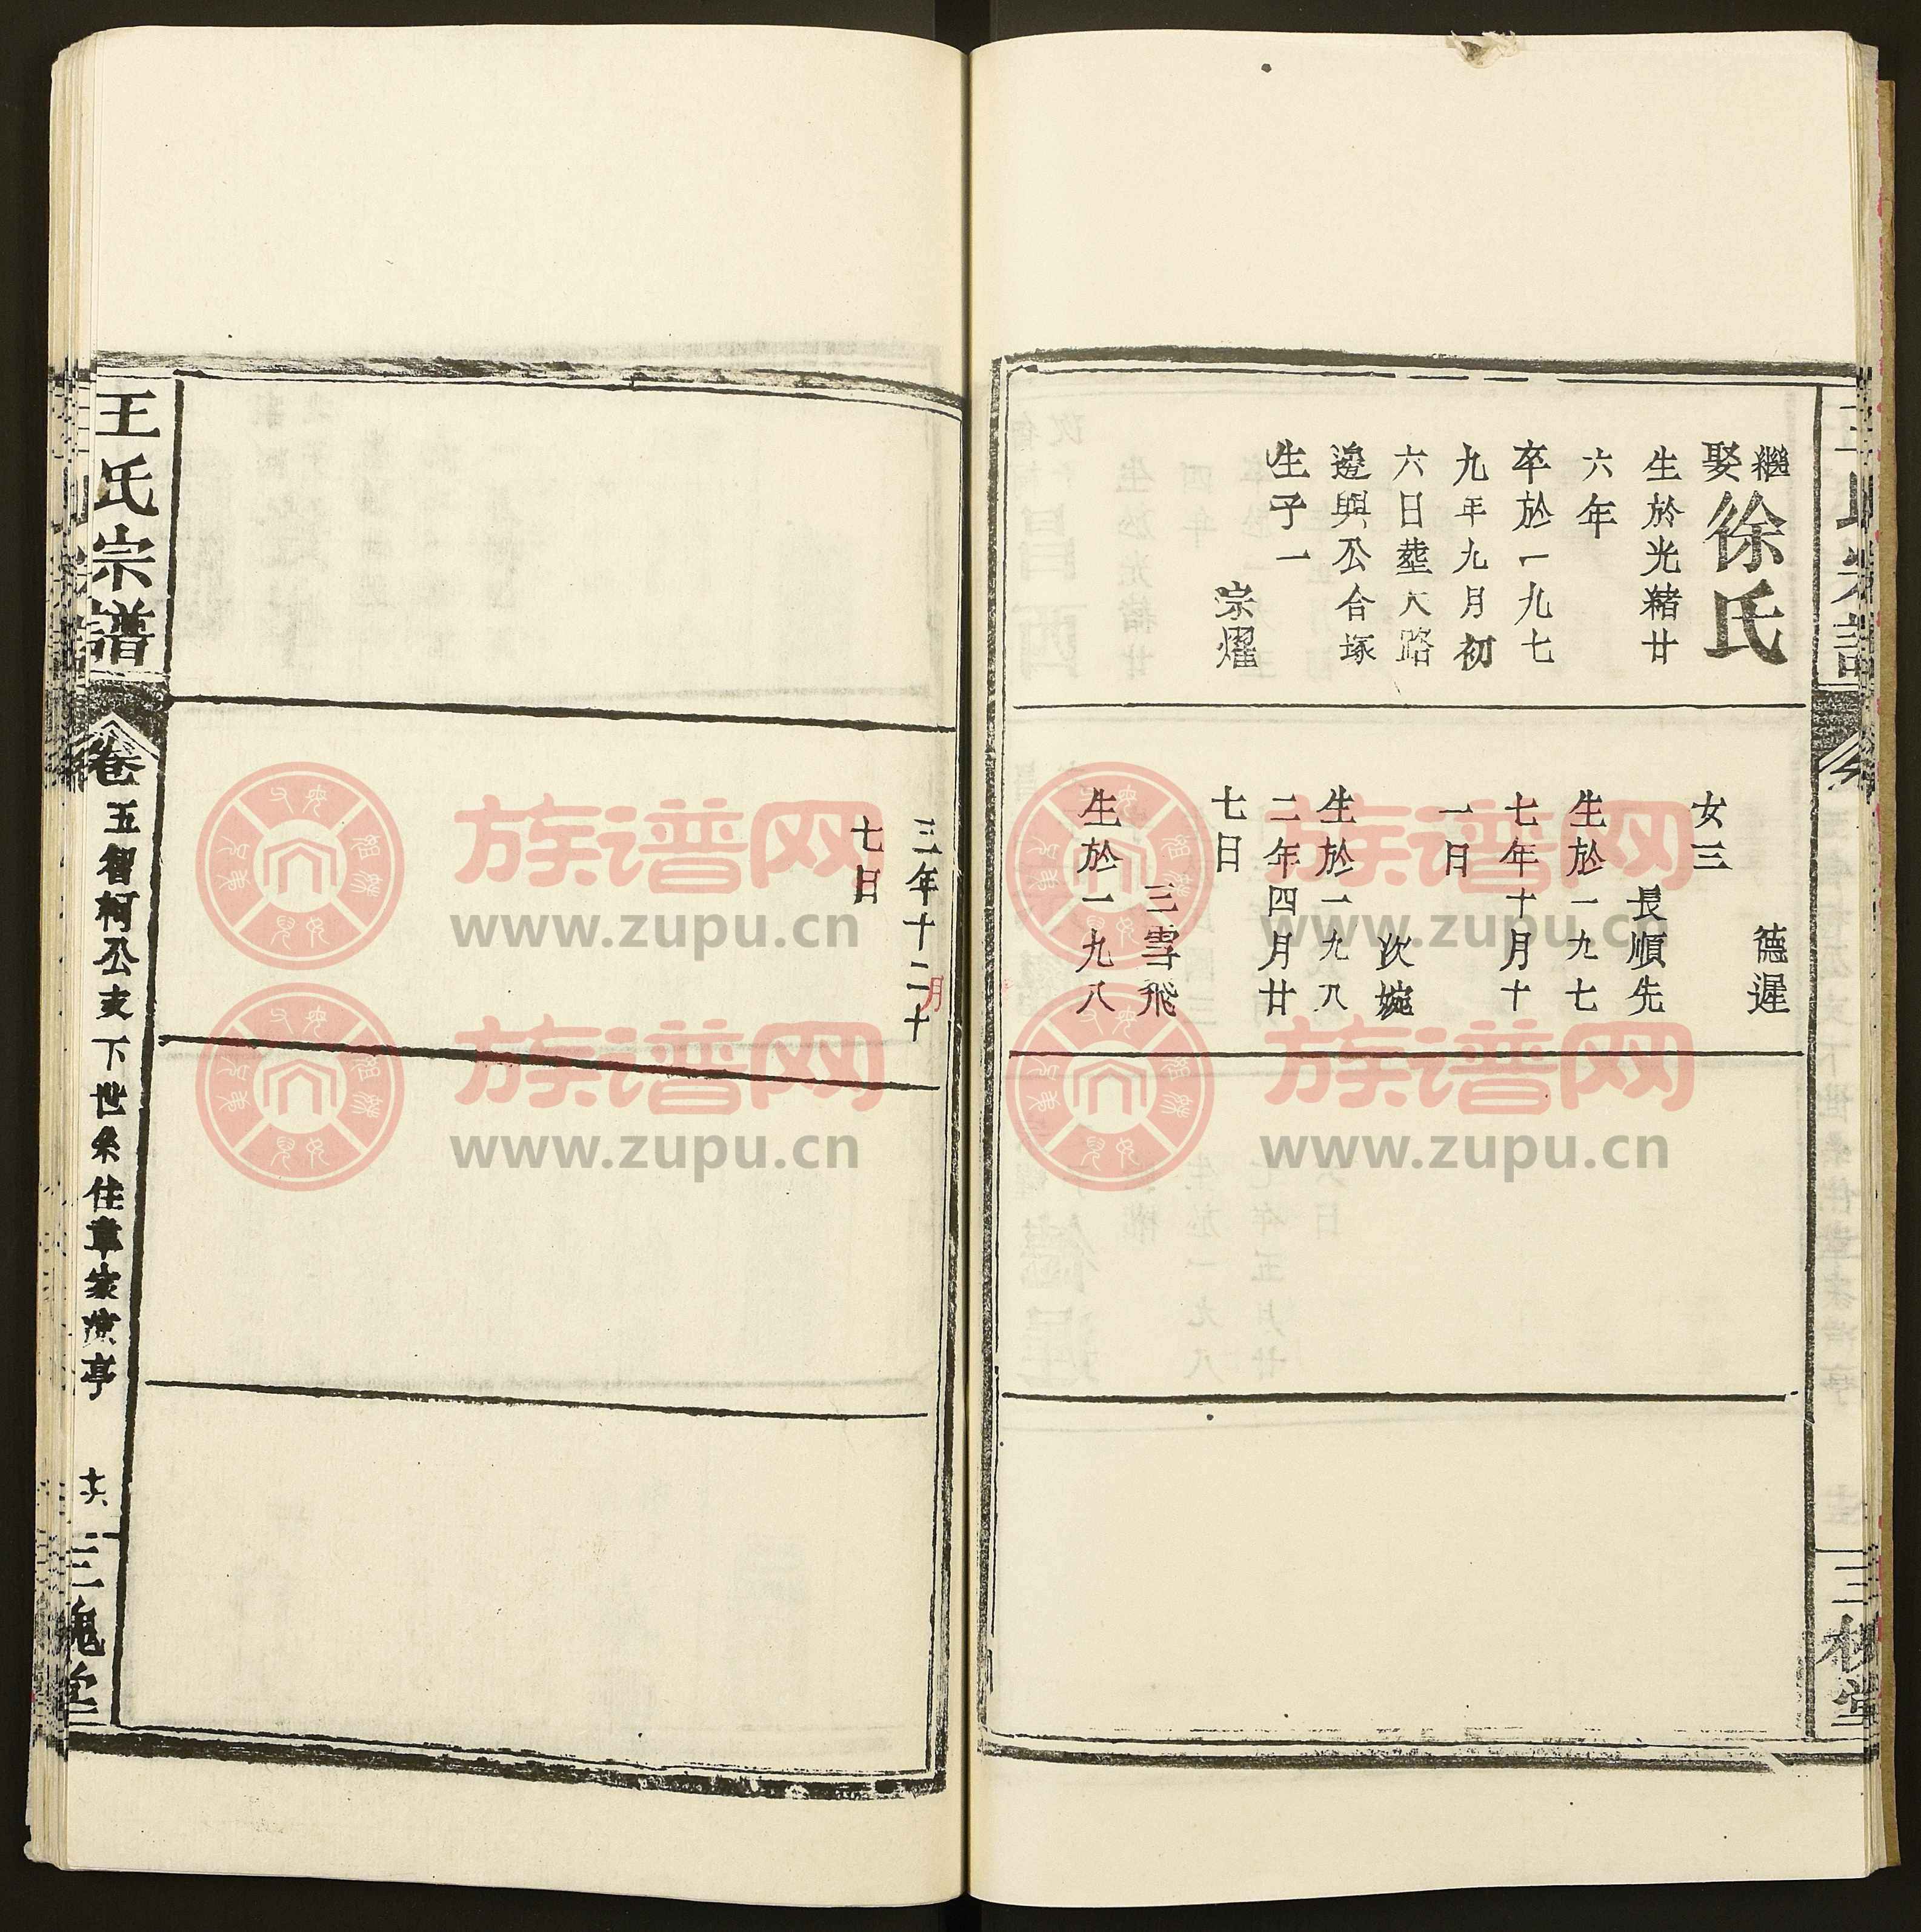 繼
娶
徐氏
生於光緒廿
六年
卒於一九七
九年九月初
六日塟大路
邉與公合塚
生子一
宗燿
德遲
女三
長順先
生於一九七
七年十月十
一日
次婉
生於一九八
二年四月廿
七日
三雪飛
生於一九八
三年十二月十
七日
王氏宗譜
卷五智柯公支下世系住章家漬亭
共
三槐堂
三槐堂
族谱网
www.zupu.cn
族谱网
www.zupu.cn
族谱网
www.zupu.cn
族谱网
www.zupu.cn